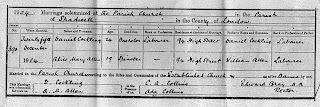 1904. Marriage solemnized at the Parish Church in the Parish
of Shadwell in the County of London
No. When Married. Name and Surname. Age. Condition. Rank or Profession. Residence at the time of Marriage. Father's Name and Surname. Rank or Profession of Father.
Twenty fifth Daniel Coslling 24 Bachelor Labourer 94 High Street Daniel Coslling Labourer
December
1904 Alice Mary Allen 19 Spinster — 94 High Street William Allen Labourer
Married in the Parish Church according to the Rites and Ceremonies of the Established Church by or after Banns by me,
D. Coslling
A. M. Allen
Ada Collins
Edward Bray
Rector